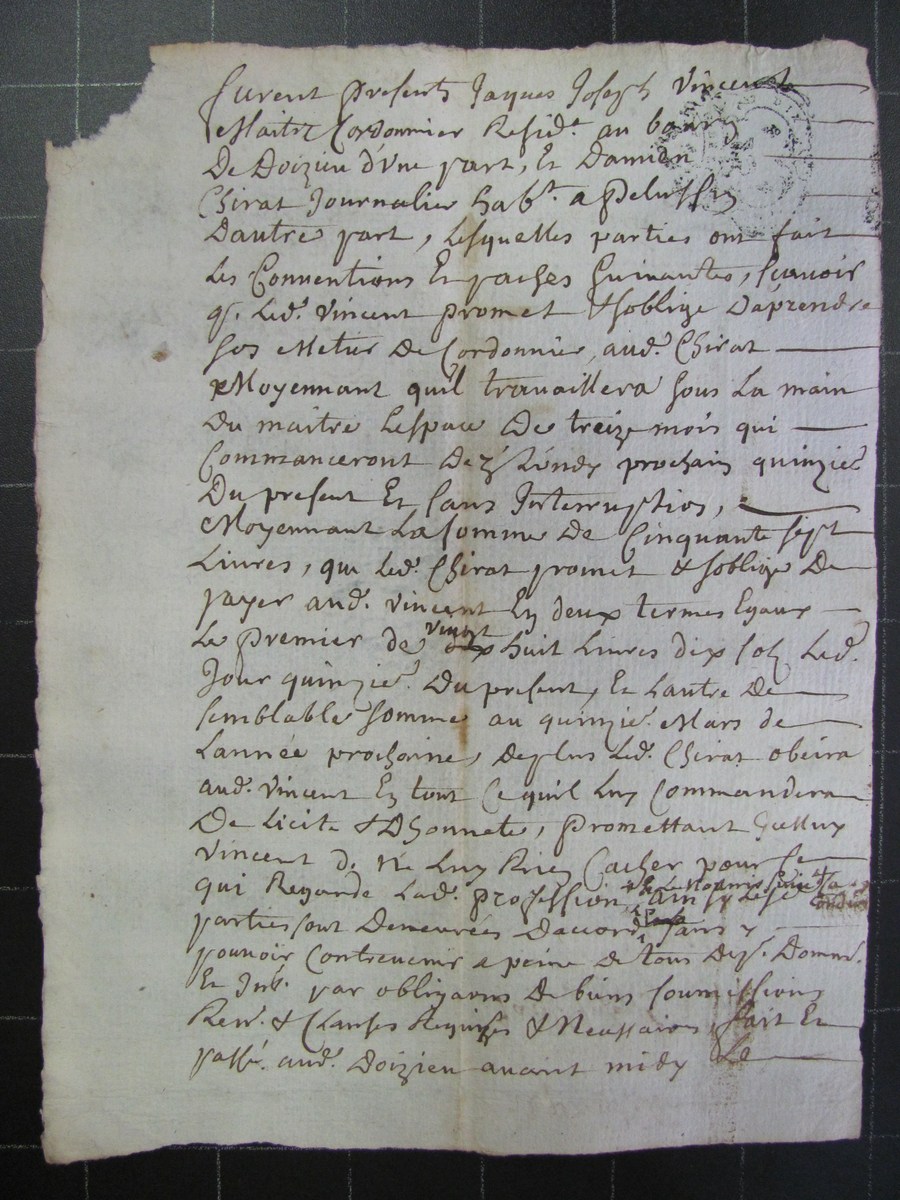 furent presents Jaques Joseph Vincent
Maitre Cordonnier Resid.t au bourg
De Doizieu d'Une part, Et Damien
Chirat Journalier hab.t a Pelussin
Dautre part, Lesquelles parties ont fait
Les Conventions Et paches Suivantes, scavoir
q. Led. Vincent promet & soblige Daprendre
son Metier De Cordonnier, aud. Chirat
Moyennant quil travaillera sous La main
Du maitre Lespace De treize mois qui
Commanceront Dez Lundy prochain quinzie.
Du present Et sans Interruption,
Moyennant La somme De Cinquante sept
Livres, que Led. Chirat promet & soblige De
payer aud. Vincent En deux termes Egaux
Le premier de vingt huit Livres dix sols Led.
Jour quinzie. Du present, Et Lautre De
semblable somme au quinzie. Mars de
Lannée prochaine, Deplus Led. Chirat obeira
aud. Vincent En tout Ce quil Luy Commandera
De Licite & Dhonnete, promettant
Vincent de Ne Luy Rien Cacher pour Ce
qui Regarde Lad. profession, ainsy Les
parties sont Demeurées Daccord, sans y
pouvoir Contrevenir a peine de tous Dep. Domm.
Et Int. par obligaons De biens soumissions
Ren. & Clauses Requises & Necessaires, fait Et
passé. aud. Doizieu avant midy Le